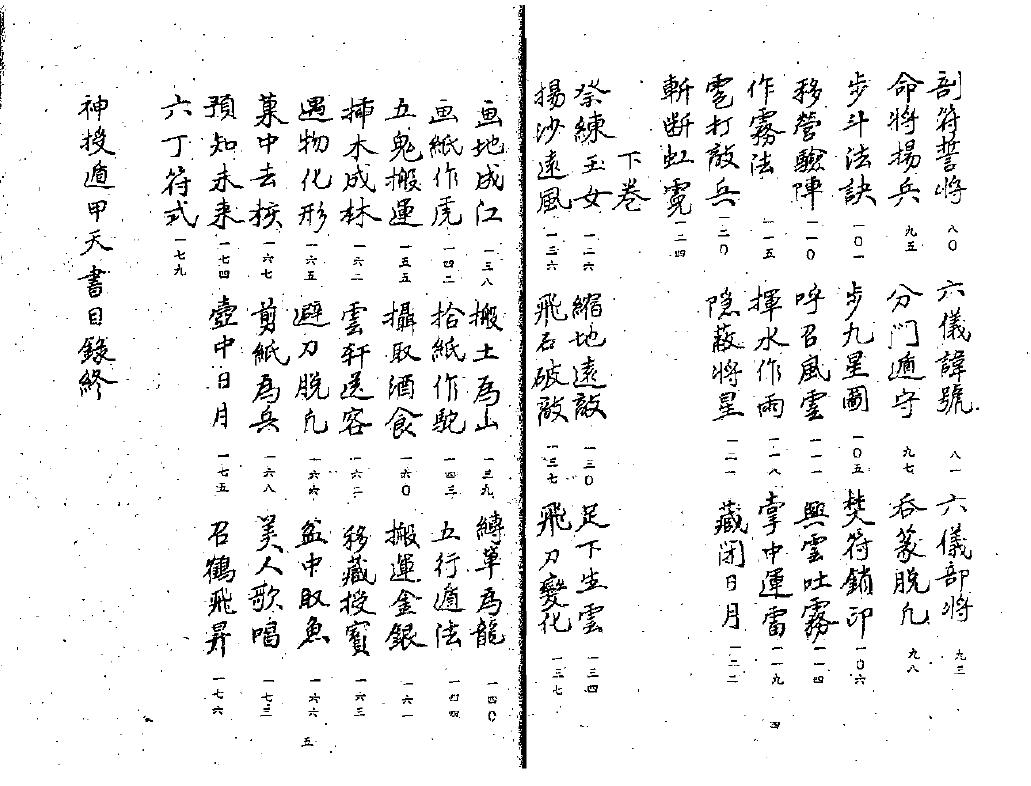 剖符誓將 八〇 六儀諱號 八一 六儀部將 九三
命將揚兵 九五 分門遁守 九七 吞篆脫凡 九八
步斗法訣 一〇一 步九星圖 一〇五 焚符銷印 一〇六
移營驗陣 一一〇 呼召風雲 一一一 興雲吐霧 一一四
作霧法 一一五 揮水作雨 一一八 掌中運雷 一一九
雹打敵兵 一二〇 隐蔽將星 一二一 藏閉日月 一二二
斬断虹霓 一二四
下卷
祭練玉女 一二六 縮地遠敵 一三〇 足下生雲 一三四
揚沙遠風 一三六 飛石破敵 一三七 飛刀變化 一三七
四
画地成江 一三八 搬土為山 一三九 縛草為龍 一四〇
画紙作虎 一四二 拾紙作駝 一四三 五行遁法 一四四
五鬼搬運 一五五 攝取酒食 一六〇 搬運金銀 一六一
插木成林 一六二 雲軒送客 一六二 移藏授賓 一六三
遇物化形 一六五 避刀脫凡 一六六 盆中取魚 一六六
菓中去核 一六七 剪紙為兵 一六八 美人歌唱 一七三
預知未来 一七四 壺中日月 一七五 召鶴飛昇 一七六
六丁符式 一七九
神授遁甲天書目錄終
五